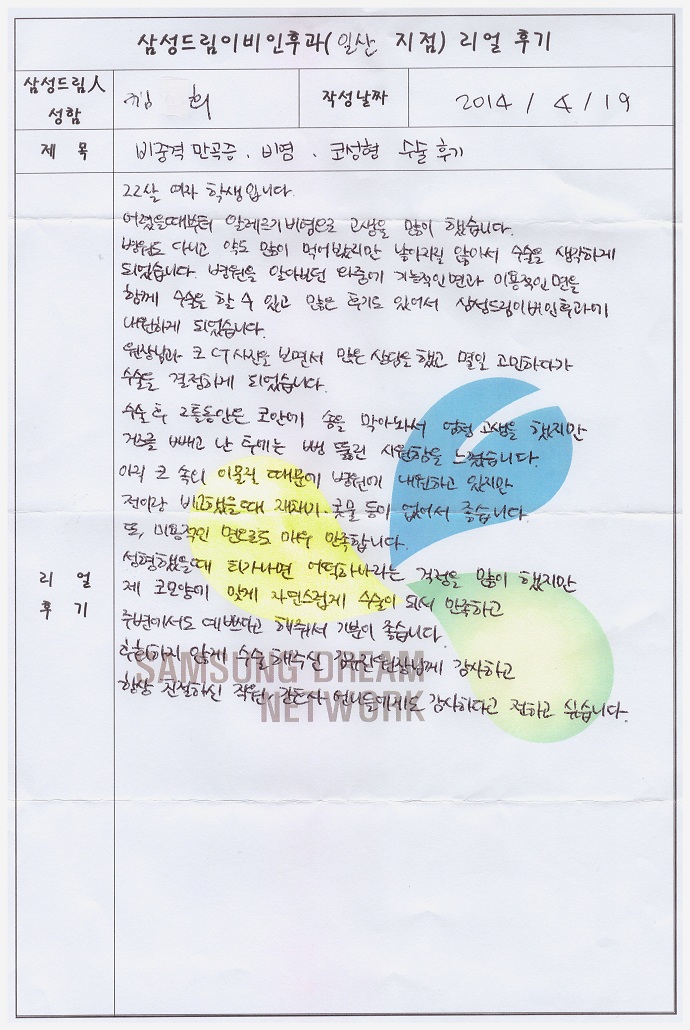 삼성드림이비인후과(일산 지점) 리얼 후기
삼성드림人
성함
김 희
작성날짜
2014 / 4 / 19
제 목
비중격 만곡증 . 비염 . 코성형 수술 후기
22살 여자 학생입니다.
어렸을때부터 알레르기비염으로 고생을 많이 했습니다.
병원도 다니고 약도 많이 먹어봤지만 낳아지질 않아서 수술을 생각하게
되었습니다. 병원을 알아보던 와중에 기능적인면과 미용적인면을
함께 수술을 할 수 있고 많은 후기도 있어서 삼성드림이비인후과에
내원하게 되었습니다.
원장님과 코 CT사진을 보면서 많은 상담을 했고 몇일 고민하다가
수술을 결정하게 되었습니다.
수술 후 2틀동안은 코안에 솜을 막아놔서 엄청 고생을 했지만
거즈를 빼고 난 후에는 뻥 뚫린 시원함을 느꼈습니다.
아직 코 속의 이물질 때문에 병원에 내원하고 있지만
전이랑 비교했을때 재채기. 콧물 등이 없어서 좋습니다.
또, 미용적인 면으로도 아주 만족합니다.
성형했을때 티가나면 어떡하나라는 걱정을 많이 했지만
제 코모양에 맞게 자연스럽게 수술이 되서 만족하고
주변에서도 예쁘다고 해줘서 기분이 좋습니다.
후회하지 않게 수술해주신 원장님께 감사하고
항상 친절하신 직원, 간호사 언니들에게도 감사하다고 전하고 싶습니다.
리 얼
후 기
SAMSUNG DREAM
NETWORK